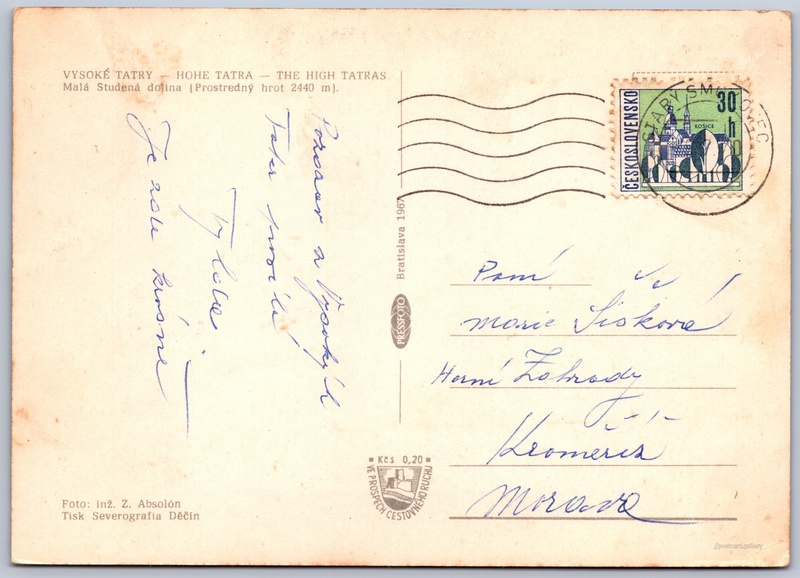 VYSOKÉ TATRY — HOHE TATRA — THE HIGH TATRAS
Malá Studená dolina (Prostredný hrot 2440 m).
Pozdrav z Vysokých
Tater
Je zde krásně
Foto: inž. Z. Absolón
Tisk Severografia Děčín
Bratislava 1967
PRESSFOTO
Kčs 0,20
VE PROSPĚCH CESTOVNÉHO RUCHU
ČESKOSLOVENSKO
30 h
KOŠICE
STARÝ SMOKOVEC
Paní
Marie Šišková
Horní Zahrady
Kroměříž
Morava